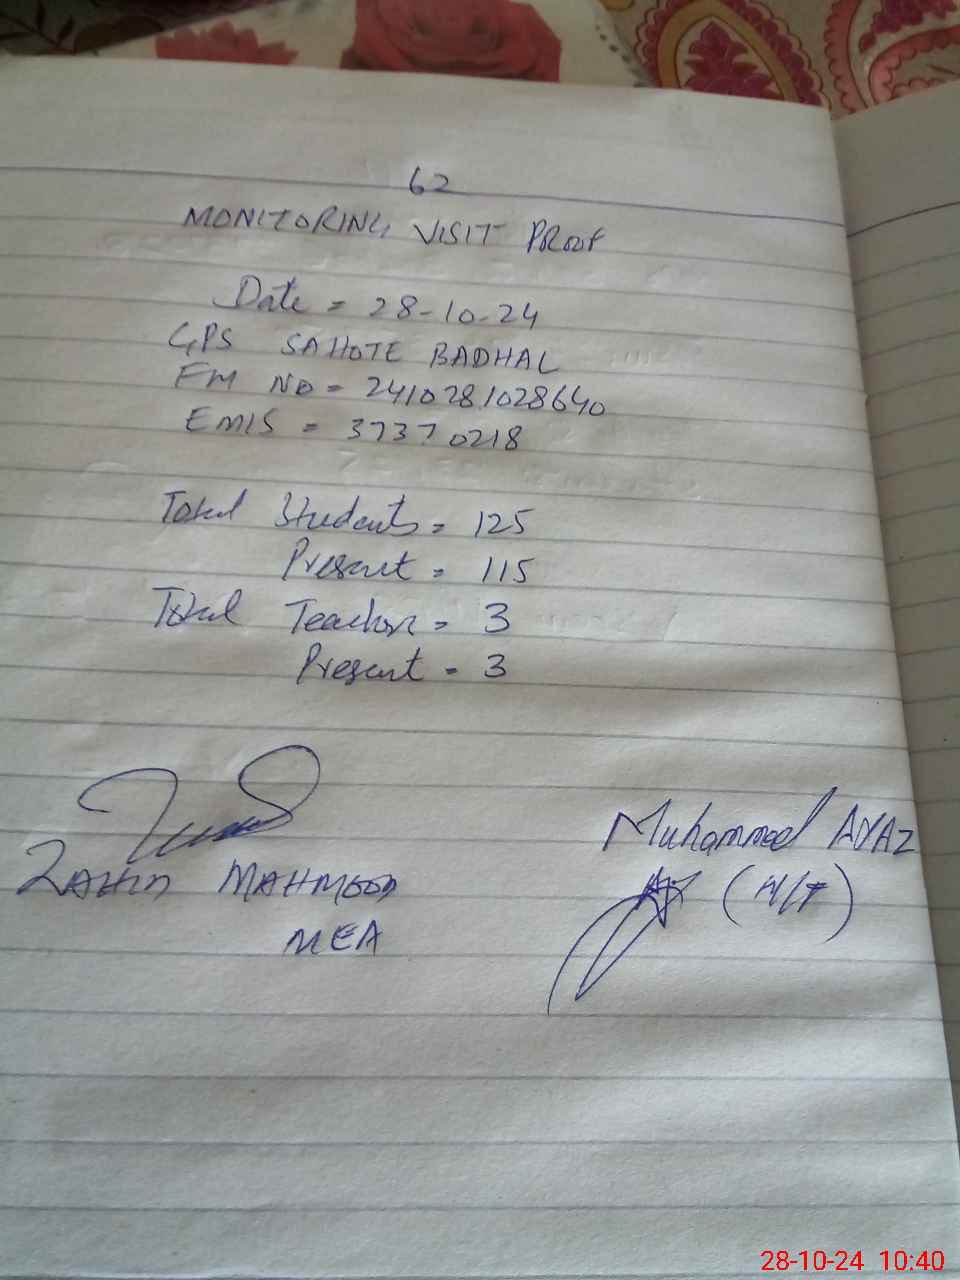 62
MONITORING VISIT PROOF
Date = 28-10-24
GPS SAHOTE BADHAL
FM NO = 2410281028640
EMIS = 37370218
Total Students = 125
Present = 115
Total Teacher = 3
Present = 3
ZAHID MAHMOOD
MEA
Muhammad AYAZ
(H/T)
28-10-24 10:40